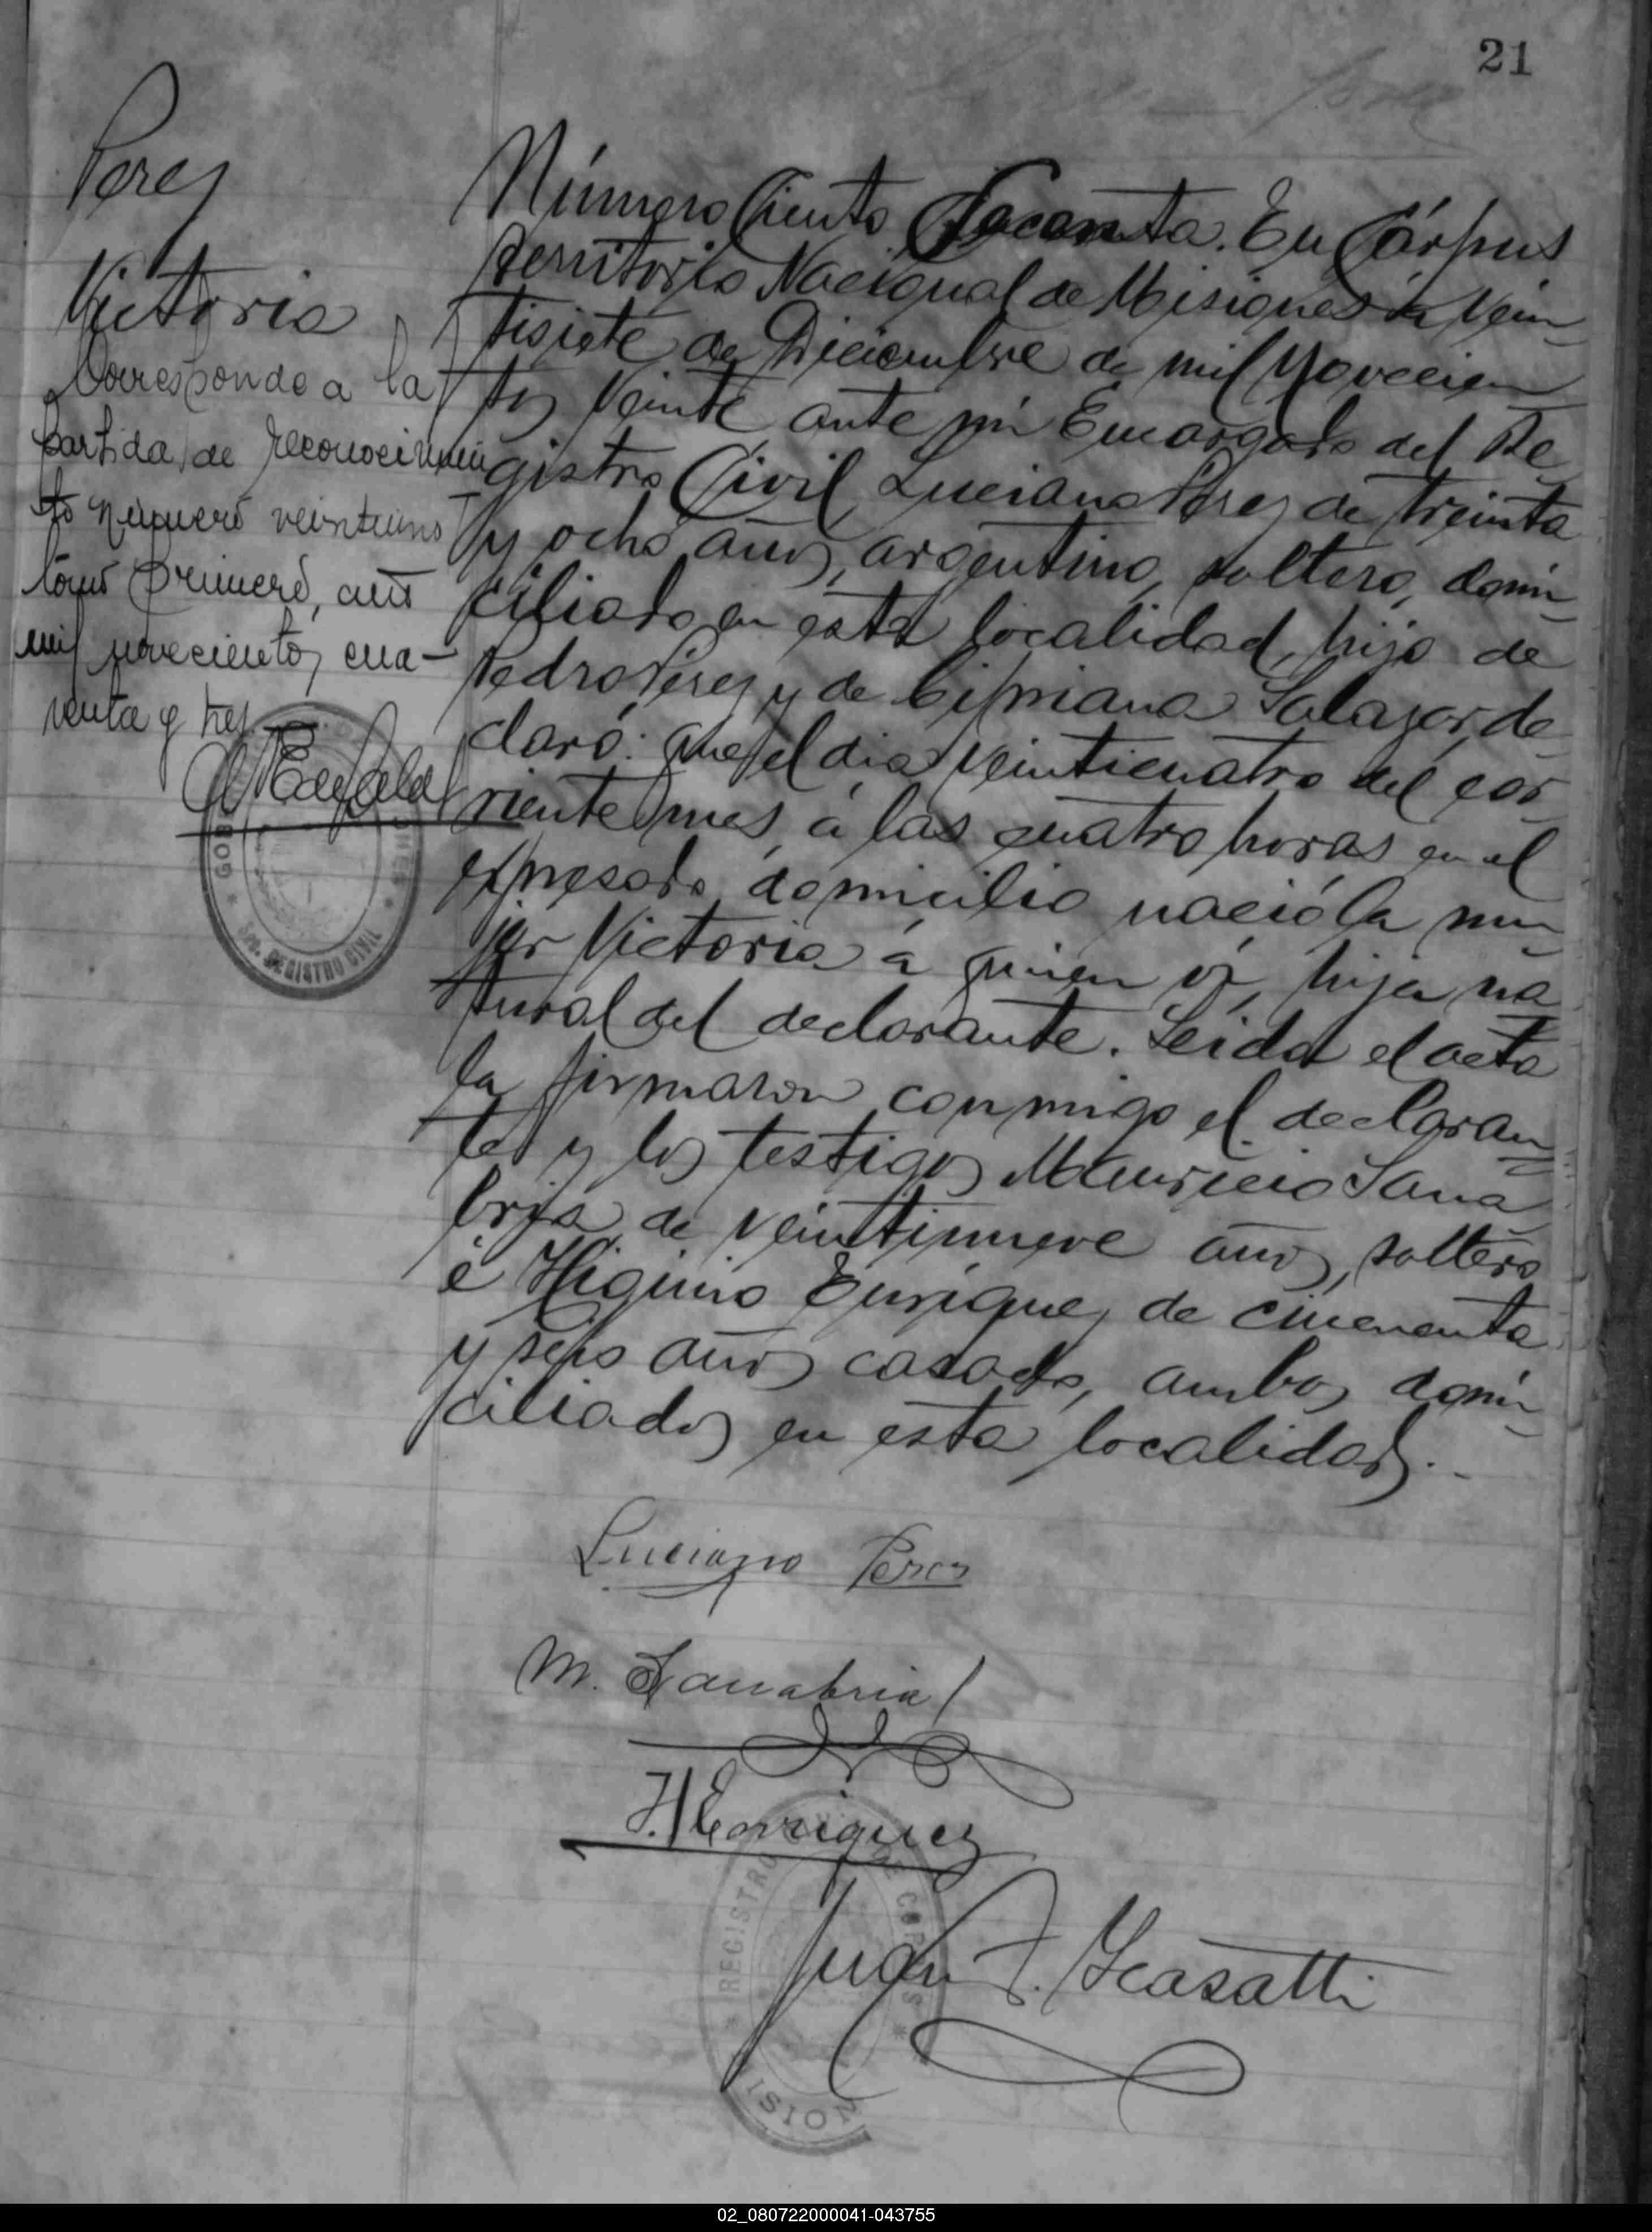 21
Perez
Victoria
Corresponde a la
partida de reconocimien
to número veintiuno
tomo primero, año
mil novecientos cua-
renta y tres
GOB
REGISTRO CIVIL
Número Ciento Secenta. En Córpus
territorio Nacional de Misiones á vein-
tisiete de Diciembre de mil Novecien
tos veinte ante mi Encargado del Re-
gistro Civil, Luciano Perez de treinta
y ocho años, argentino, soltero, domi-
ciliado en esta localidad, hijo de
Pedro Perez y de Cipriana Salazar, de-
claró: que el dia veinticuatro del cor-
riente mes, á las cuatro horas en el
expresado domicilio nació la mu-
jer Victoria á quien ví, hija na-
tural del declarante. Leida el acta
la firmaron conmigo el declaran-
te y los testigos Mauricio Sana-
bria de veintinueve años, soltero
é Higinio Enrique, de cincuenta
y seis años casado, ambos domi-
ciliados en esta localidad.-
Luciano Perez
M. Sanabria
H Enriquez
Juan F. Scasatti
REGISTRO DE CORPUS
MISION
02_080722000041-043755